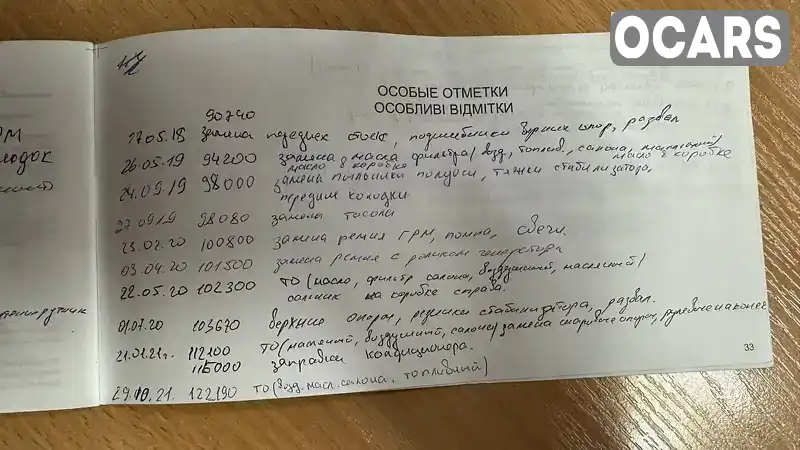 OCARS
ОСОБЫЕ ОТМЕТКИ
ОСОБЛИВІ ВІДМІТКИ
90740
27.05.18 замена передних стоек, подшибники верхних опор, развал
26.05.19 94200 замена масла фильтра/возд, топлив, салона, масляный/
масло в коробке масло в коробке
24.09.19 98000 замена пыльники полуоси, тяжки стабилизатора,
передние колодки
27.09.19 98080 замена тосола
23.02.20 100800 замена ремня ГРМ, помпа, свечи.
03.04.20 101500 замена ремня с роликом генератора
22.05.20 102300 ТО (масло, фильтр салона, воздушный, масляный)
сальник на коробке справа.
01.07.20 103670 верхние опоры, резинки стабилизатора, развал.
21.01.21г. 112100 ТО (масляный, воздушный, салона) замена шаровые опоры, рулевые наконеч
115000 заправка кондиционера.
29.10.21. 122190 ТО (возд. масл. салона, топливный)
33
РМ
лодок